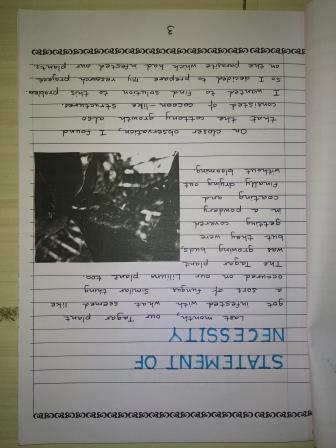 STATEMENT OF
NECESSITY
Last month, our Tagar plant
got infested with what seemed like
a sort of fungus. Similar thing
occured on our Lilium plant too.
The Tagar plant
was growing buds,
but they were
getting covered
in a powdery
coating and
finally drying out
without blooming.
On closer observation, I found
that the cottony growth also
consisted of cocoon-like structures.
I wanted to find solution to this problem.
So I decided to prepare my research project
on the parasite which had infested our plants.
3